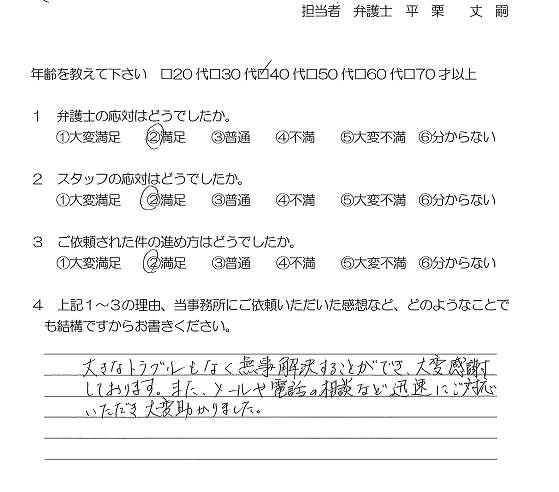 担当者 弁護士 平 栗 丈 嗣
年齢を教えて下さい □20代□30代☑40代□50代□60代□70才以上
1 弁護士の応対はどうでしたか。
①大変満足 ②満足 ③普通 ④不満 ⑤大変不満 ⑥分からない
2 スタッフの応対はどうでしたか。
①大変満足 ②満足 ③普通 ④不満 ⑤大変不満 ⑥分からない
3 ご依頼された件の進め方はどうでしたか。
①大変満足 ②満足 ③普通 ④不満 ⑤大変不満 ⑥分からない
4 上記1～3の理由、当事務所にご依頼いただいた感想など、どのようなことで
も結構ですからお書きください。
大きなトラブルもなく無事解決することができ、大変感謝
しております。また、メールや電話の相談など迅速にご対応
いただき大変助かりました。